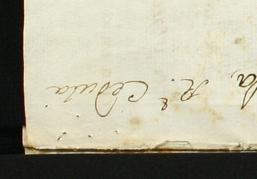 la, Rl Cedula